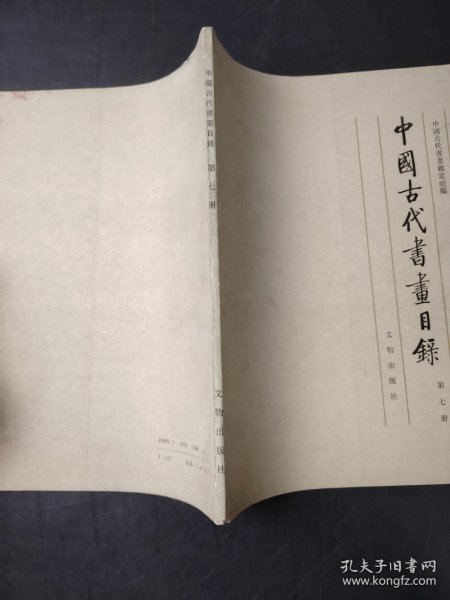 中國古代書畫鑑定組編
中國古代書畫目錄
第七册
文物出版社
中國古代書畫目錄 第七册
文物出版社
孔夫子旧书网
www.kongfz.com